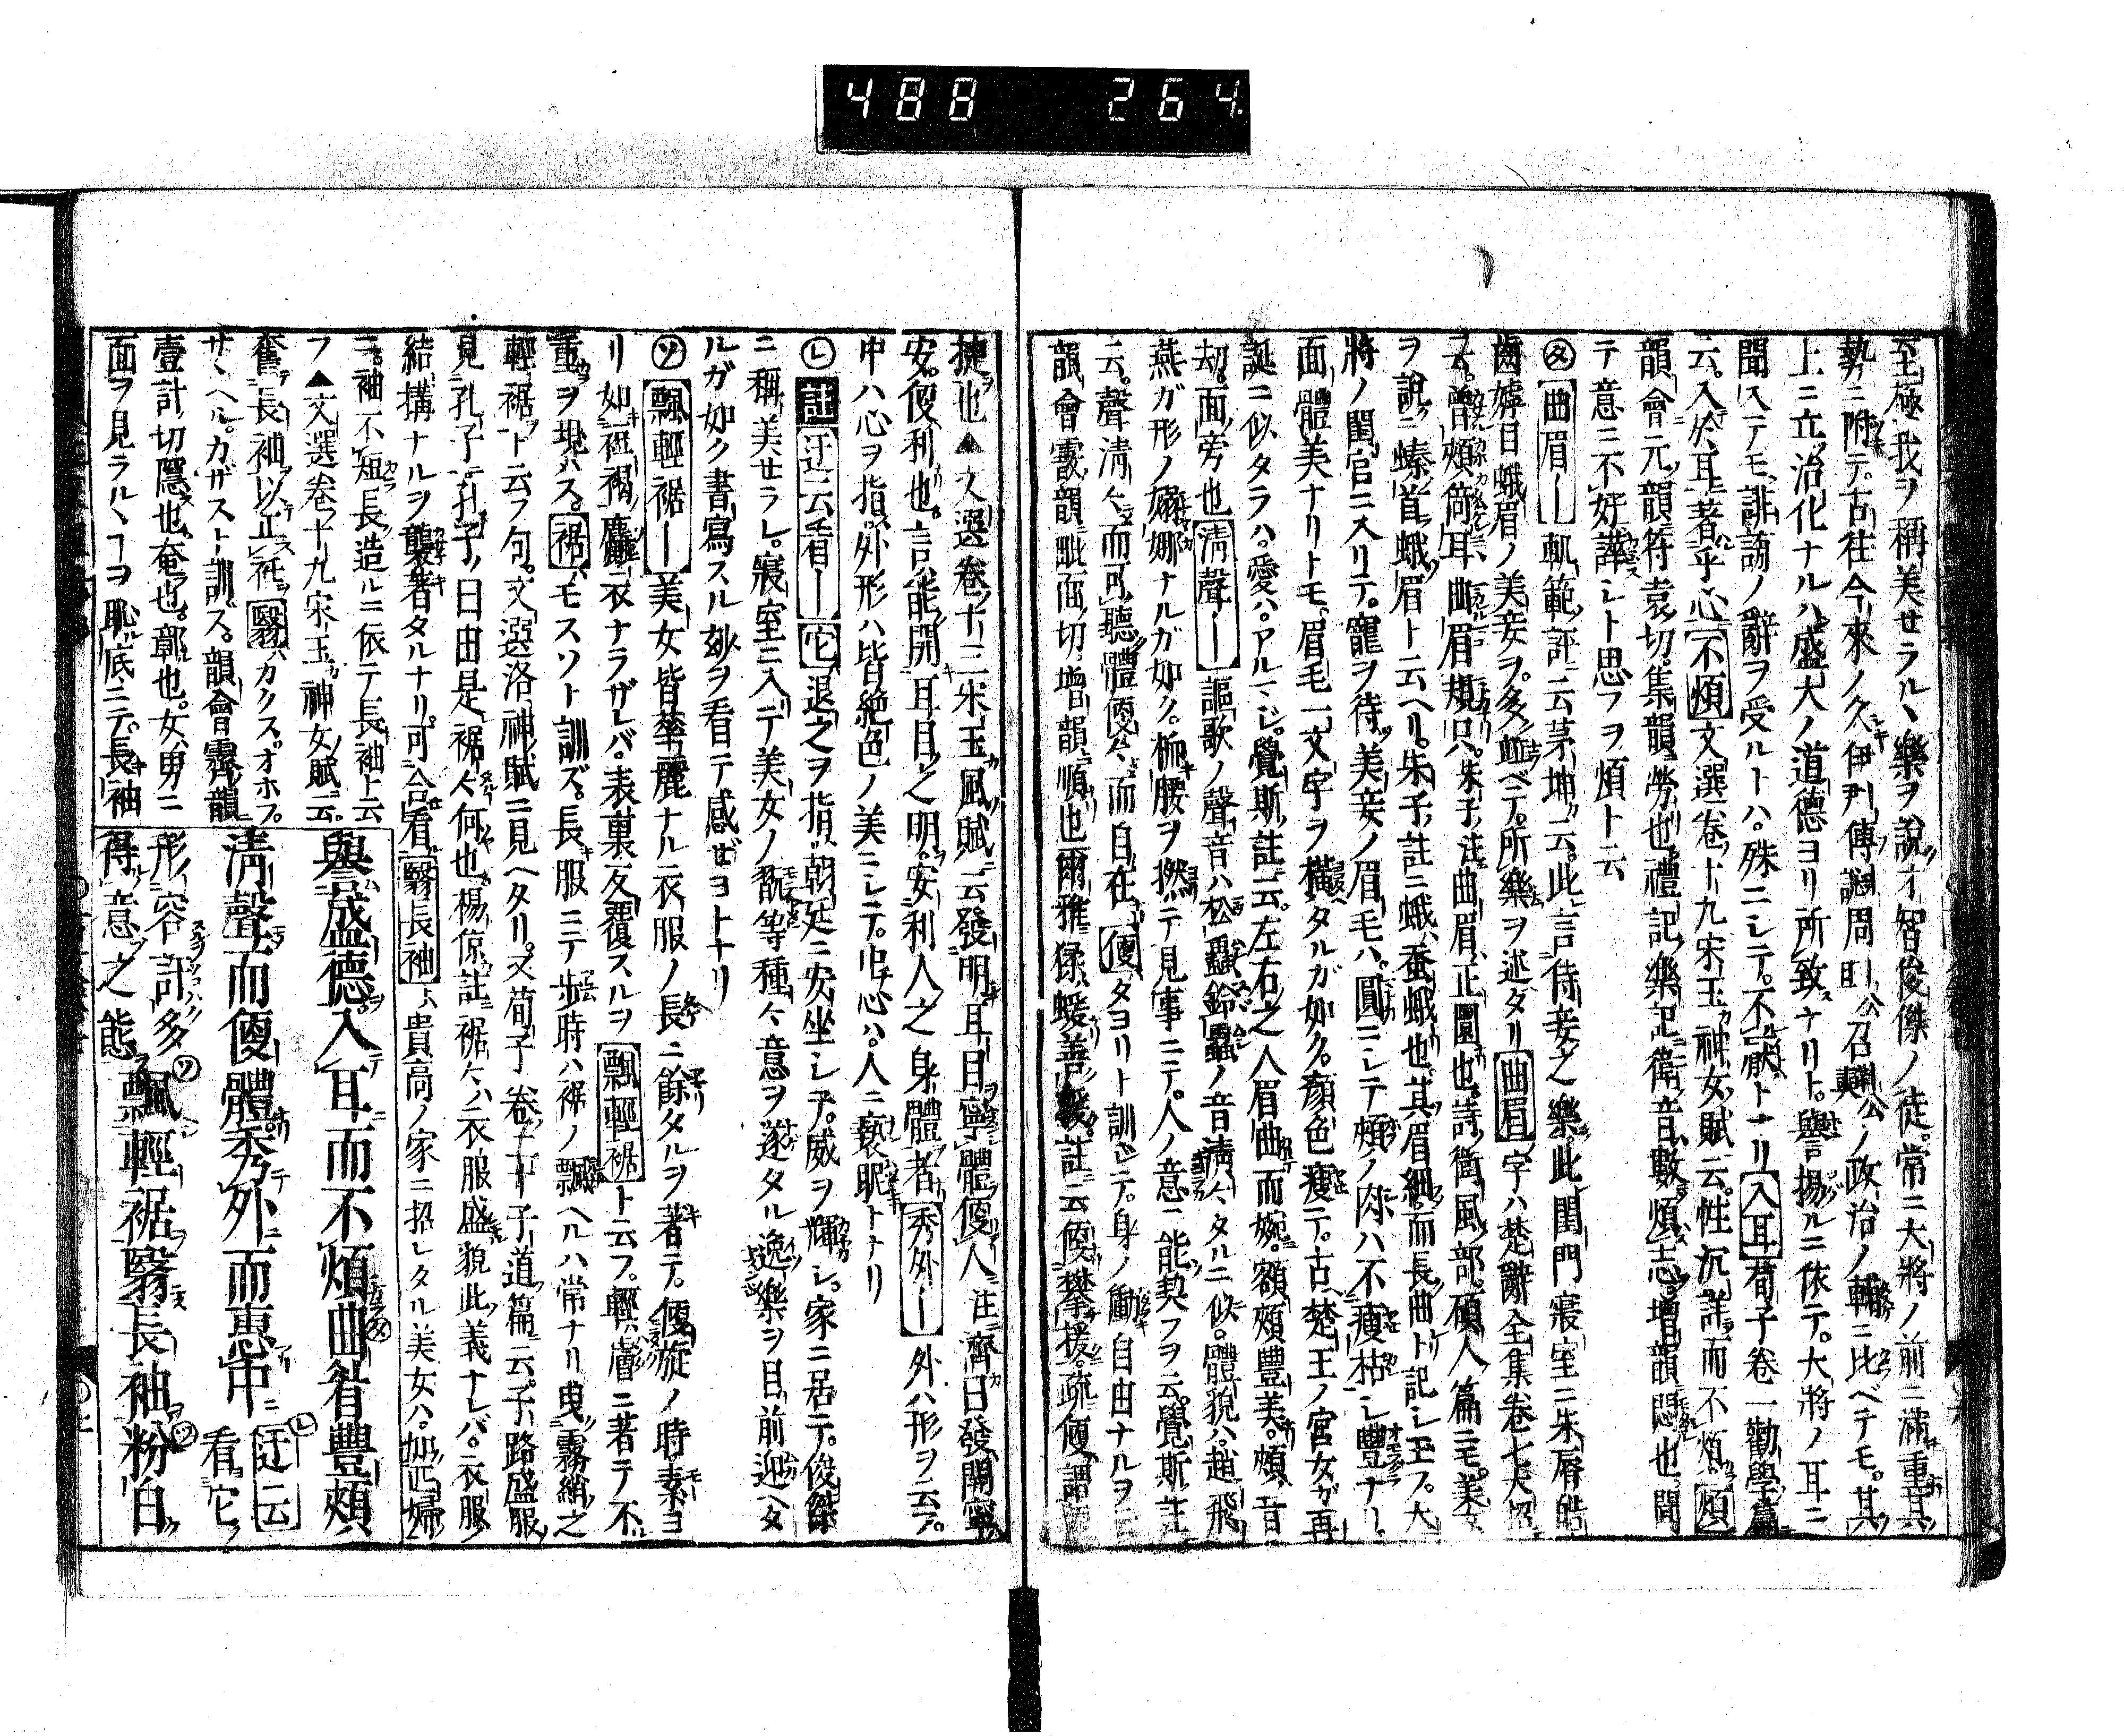 488 264.
至極我ヲ稱美セラルヽ樂ヲ說ク才智俊傑ノ徒。常ニ大將ノ前ニ滿重其
勢ニ附テ。古往今來ノ久伊尹傅說周旦公召奭公ノ政治ノ輔ニ比ベテモ。其
上ニ立治化ナルハ盛大ノ道德ヨリ所致ナリト。譽言揚ルニ依テ。大將ノ耳ニ
聞入テモ。誹謗ノ辭ヲ受ルトハ。殊ニシテ。不厭トナリ入耳荀子卷一勸學篇
云。入於耳著乎心不煩文選卷十九宋玉神女賦云。性沉詳而不煩。煩
韻會元韻符袁切。集韻勞也。禮記樂記衛音數煩志。增韻悶也間
テ意ニ不好譁シト思フヲ煩ト云
タ曲眉ー軌範評云茅坤云。此言侍妾之樂。此閨門寢室ニ朱脣皓
齒嫭目蛾眉ノ美妾ヲ。多並ベテ。所樂ヲ述タリ曲眉字ハ楚辭全集卷七大招
云。曾頰倚耳曲眉規只。朱子注曲眉正圓也。詩衛風部。碩人篇ニモ。美女
ヲ說ニ螓首蛾眉ト云ヘリ。朱子註ニ蛾蚕蛾也其眉細而長曲ト記シ玉フ。大
將ノ閨官ニ入リテ。寵ヲ待美妾ノ眉毛ハ。圓ニシテ頰ノ肉ハ不瘦枯シ豐ナリ。
面體美ナリトモ。眉毛一文字ヲ橫タルガ如ク。顏色瘦テ。古楚王ノ宮女ガ再
誕ニ似タラハ。愛ハ。アルマジ。覺斯註云。左右之人眉曲而婉。額頰豐美。頰音
刧。面旁也清聲ー謳歌ノ聲音ハ松蟲鈴蟲ノ音淸々タルニ似。體貌ハ。趙飛
燕ガ形ノ嫋娜ナルガ如ク。柳腰ヲ撚ニテ見事ニテ。人ノ意ニ能契フヲ云。覺斯註
云。聲淸々而可聽體便々而自在便タヨリト訓ジテ。身ノ働自由ナルヲ云
韻會霰韻毗面切。增韻順也爾雅猱蝯善援註云便攀援。疏便謂便
捷也▲文選卷十三宋玉風賦云發明耳目寧體便人注濟曰發開寧
安。便利也。言能開耳目之明安利人之身體者秀外ー外ハ形ヲ云フ。
中ハ心ヲ指。外形ハ皆絶色ノ美ニシテ。中心ハ。人ニ褻昵トナリ
レ註迂云看ー它退之ヲ指。朝廷ニ安坐シテ。威ヲ輝シ。家ニ居テ。俊傑
ニ稱美セラレ。寢室ニ入テ美女ノ翫等種々意ヲ遂タル逸樂ヲ目前迎ヘタ
ルガ如ク書寫スル妙ヲ看テ感ゼヨトナリ
ソ飄輕裾ー美女皆華麗ナル衣服ノ長ニ餘タルヲ著テ。便旋ノ時素ヨ
リ如褞褐麤衣ナラザレバ。表裏反覆スルヲ飄輕裾ト云フ。輕膚ニ著テ不
重ヲ現ハス。裾ハモスソト訓ズ。長服ニテ步時ハ裾ノ飄ヘルハ常ナリ曳霧綃之
輕裾ト云フ句。文選洛神賦ニ見ヘタリ。又荀子卷二十子道篇云。子路盛服
見孔子。孔子ノ曰由是裾々何也。楊倞註裾々ハ衣服盛貌此義ナレバ。衣服
結構ナルヲ襲著タルナリ。可合看翳長袖ハ貴高ノ家ニ招レタル美女ハ。如匹婦
ニ。袖不短長造ルニ依テ長袖ト云
フ▲文選卷十九宋玉神女賦云。
奮長袖以正衽翳ハカクス。オホフ。
サヽヘル。カザスト訓ズ。韻會霽韻
壹計切隱也奄也。鄣也。女男ニ
面ヲ見ラルヽコヲ恥底ニテ。長袖
譽盛德入耳而不煩曲眉豐頰
淸聲而便體秀外而惠中
迂云看它
形容許多
得意之態
飄輕裾翳長袖粉白